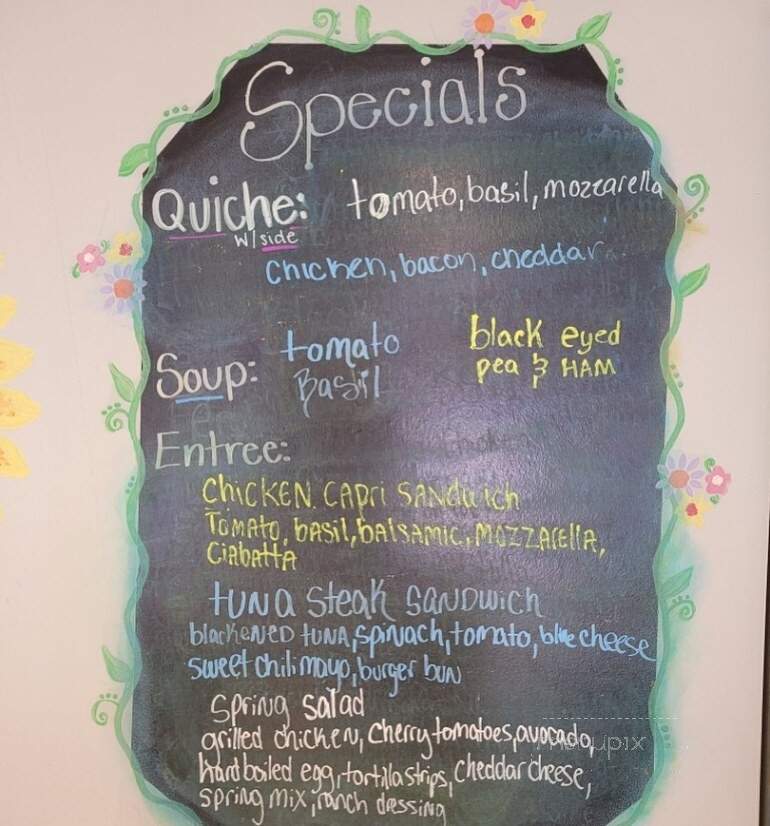 Specials
Quiche: tomato, basil, mozzarella
w/side
chicken, bacon, cheddar
Soup: tomato Basil
black eyed pea & HAM
Entree:
CHICKEN CAPRI SANDWICH
TOMATO, BASIL, BALSAMIC, MOZZARELLA,
CIABATTA
tUNA Steak SANDWICH
blackeNED tUNA, SpiNach, tomato, blue cheese
sweet chili mayo, burger buN
Spring salad
grilled chicken, Cherry tomatoes, avocado,
hard boiled egg, tortilla strips, cheddar cheese,
spring mix, ranch dressing
menupix